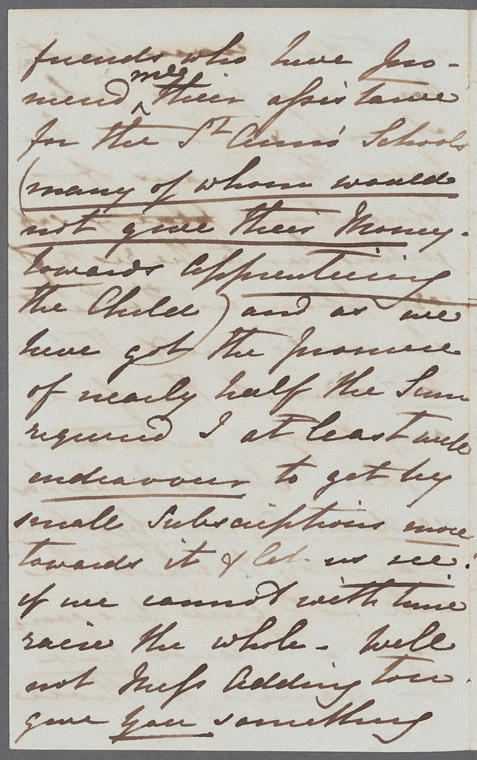 friends who have pro-
mised me their assistance
for the St Ann's Schools
(many of whom would
not give their Money
towards apprenticing
the Child) and as we
have got the promise
of nearly half the Sum
required I at least will
endeavour to get by
small Subscriptions more
towards it & let us see
if we cannot with time
raise the whole - Will
not Miss Addington
give you something